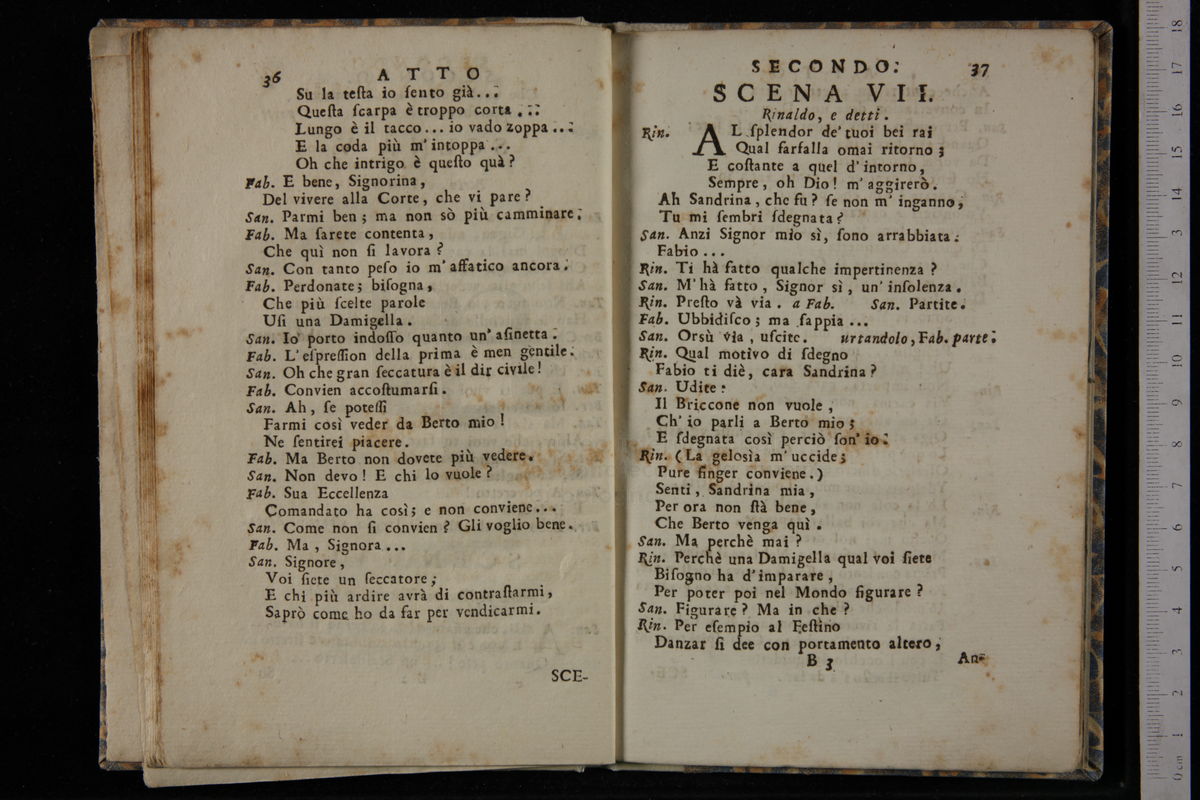 36 ATTO
Su la teſta io ſento già...
Queſta ſcarpa è troppo corta...
Lungo è il tacco... io vado zoppa...
E la coda più m'intoppa...
Oh che intrigo è queſto quà?
Fab. E bene, Signorina,
Del vivere alla Corte, che vi pare?
San. Parmi ben; ma non sò più camminare.
Fab. Ma ſarete contenta,
Che quì non ſi lavora?
San. Con tanto peſo io m'affatico ancora.
Fab. Perdonate; biſogna,
Che più ſcelte parole
Uſi una Damigella.
San. Io porto indoſſo quanto un'aſinetta.
Fab. L'eſpreſſion della prima è men gentile.
San. Oh che gran ſeccatura è il dir civile!
Fab. Convien accoſtumarſi.
San. Ah, ſe poteſſi
Farmi così veder da Berto mio!
Ne ſentirei piacere.
Fab. Ma Berto non dovete più vedere.
San. Non devo! E chi lo vuole?
Fab. Sua Eccellenza
Comandato ha così; e non conviene...
San. Come non ſi convien? Gli voglio bene.
Fab. Ma, Signora...
San. Signore,
Voi ſiete un ſeccatore;
E chi più ardire avrà di contraſtarmi,
Saprò come ho da far per vendicarmi.
SCE-
SECONDO. 37
SCENA VII.
Rinaldo, e detti.
Rin. AL ſplendor de'tuoi bei rai
Qual farfalla omai ritorno;
E coſtante a quel d'intorno,
Sempre, oh Dio! m'aggirerò.
Ah Sandrina, che fu? ſe non m'inganno,
Tu mi ſembri ſdegnata?
San. Anzi Signor mio sì, ſono arrabbiata.
Fabio...
Rin. Ti hà fatto qualche impertinenza?
San. M'hà fatto, Signor sì, un'inſolenza.
Rin. Preſto và via. a Fab. San. Partite.
Fab. Ubbidiſco; ma ſappia...
San. Orsù via, uſcite. urtandolo, Fab. parte.
Rin. Qual motivo di ſdegno
Fabio ti diè, cara Sandrina?
San. Udite:
Il Briccone non vuole,
Ch'io parli a Berto mio;
E ſdegnata così perciò ſon'io.
Rin. (La gelosìa m'uccide;
Pure finger conviene.)
Senti, Sandrina mia,
Per ora non ſtà bene,
Che Berto venga quì.
San. Ma perchè mai?
Rin. Perchè una Damigella qual voi ſiete
Biſogno ha d'imparare,
Per poter poi nel Mondo figurare?
San. Figurare? Ma in che?
Rin. Per eſempio al Feſtino
Danzar ſi dee con portamento altero,
B 3 An-